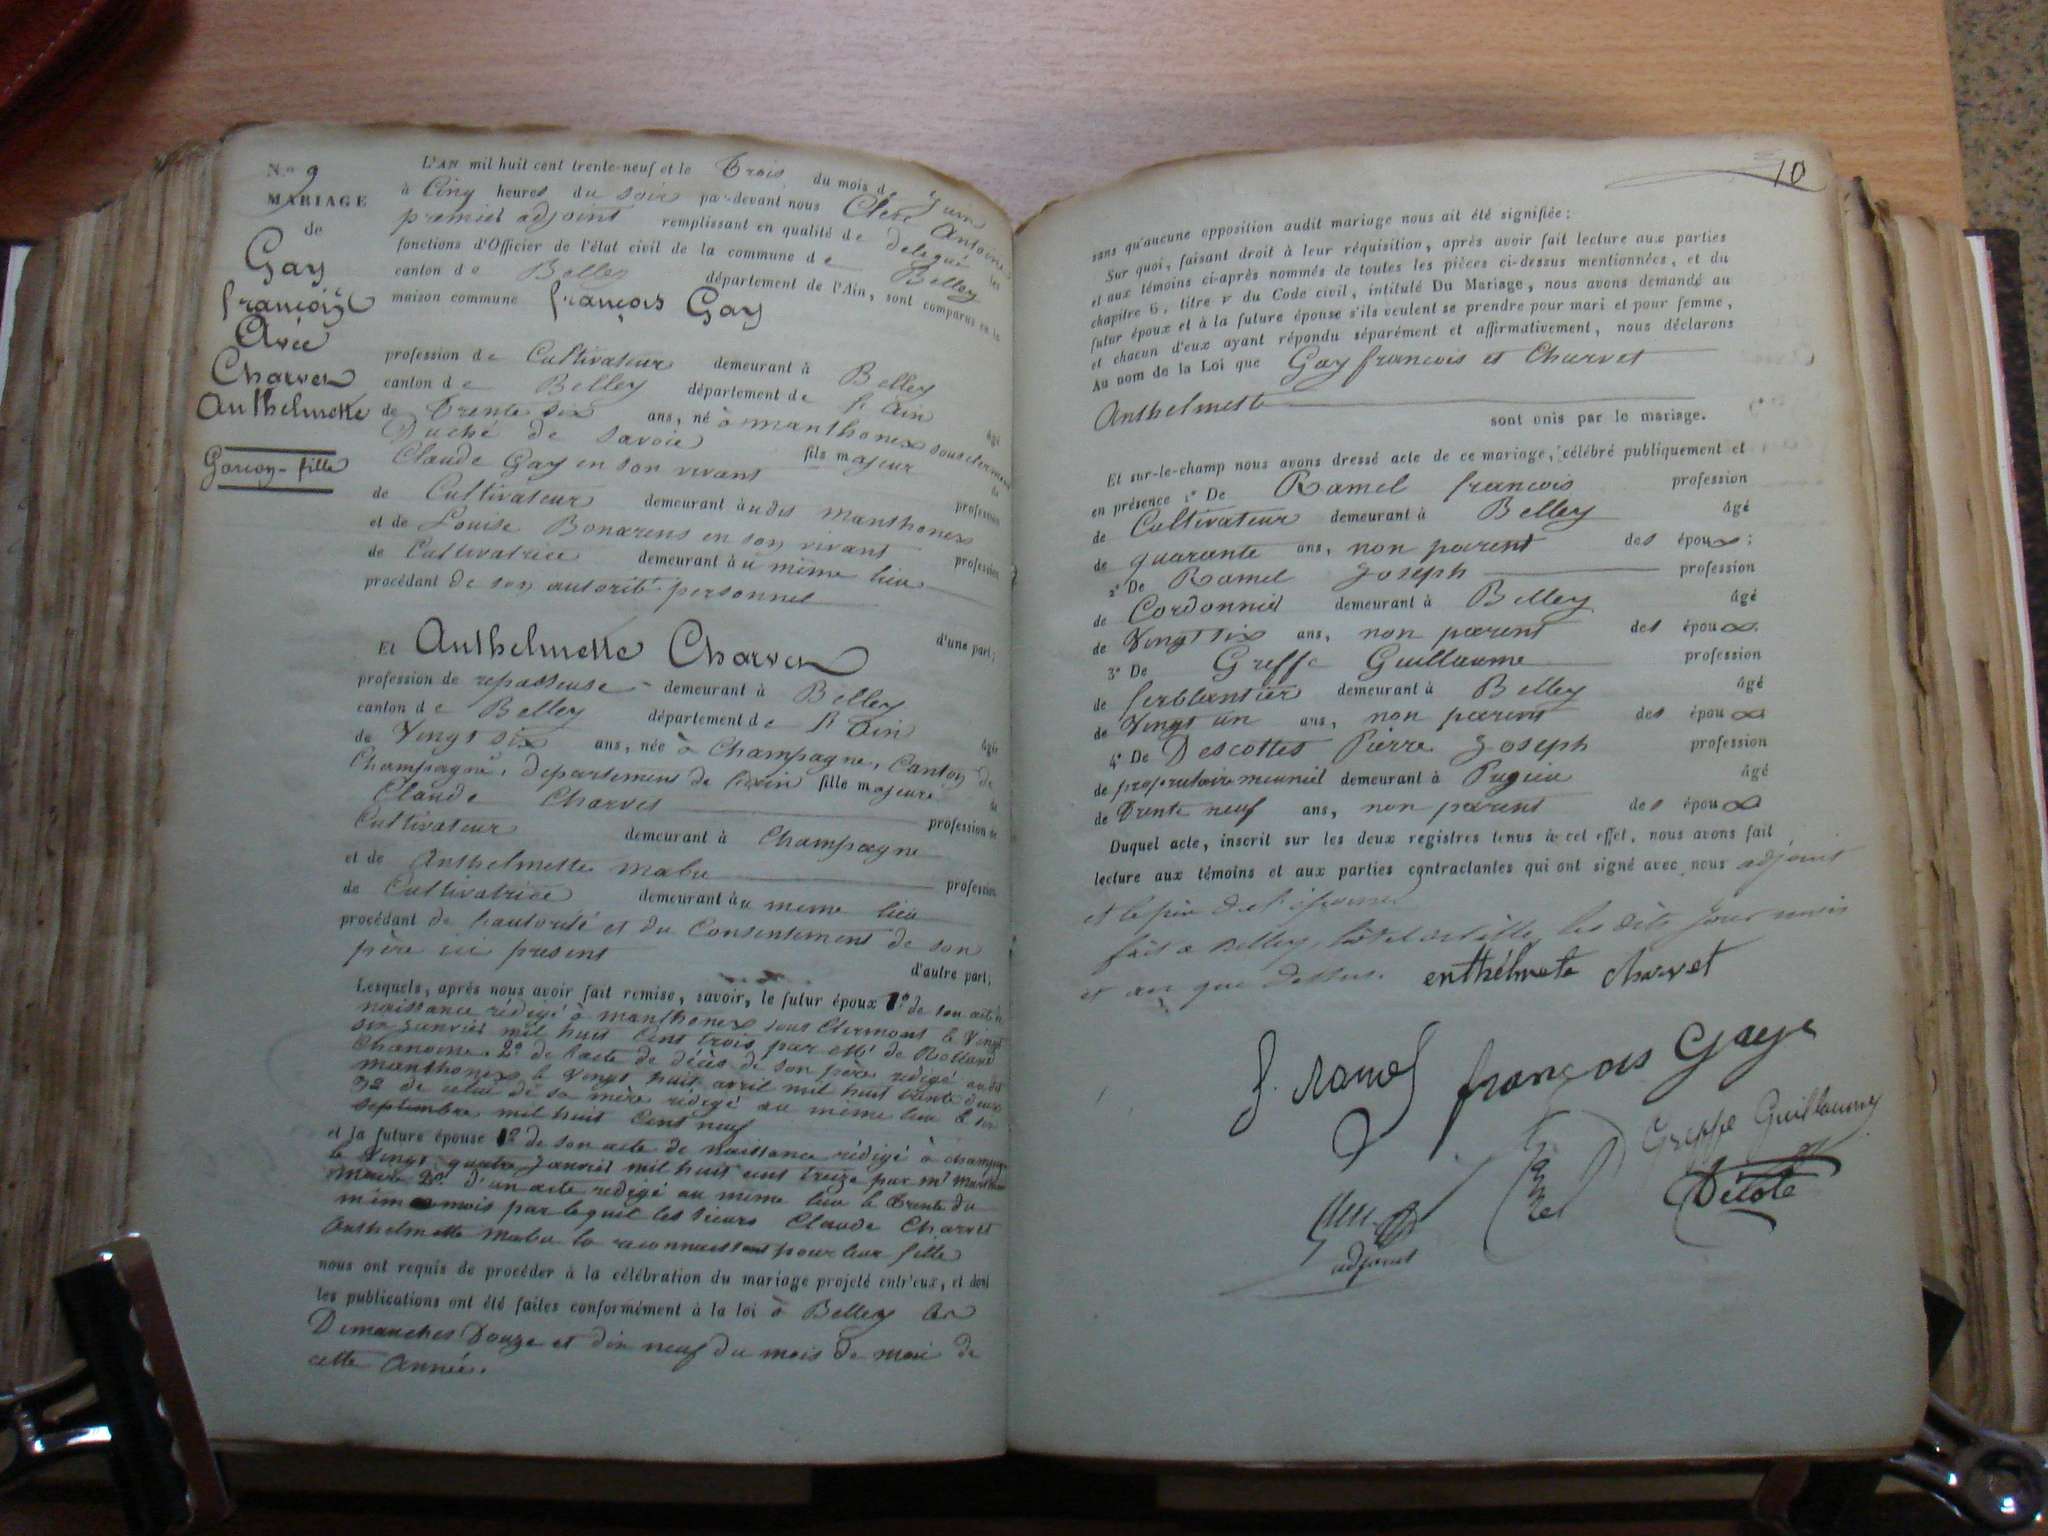 N.° 9
MARIAGE
de
Gay
françois
Avec
Charvet
Anthelmette
Garçon - fille
L'AN mil huit cent trente-neuf et le Trois du mois d Juin
à Cinq heures du soir par-devant nous Clerc Antoine
premier adjoint remplissant en qualité de delegué les
fonctions d'Officier de l'état civil de la commune de Belley
canton de Belley département de l'Ain, sont comparus en la
maison commune françois Gay
profession de Cultivateur demeurant à Belley
canton de Belley département de l'Ain âgé
de Trente six ans, né à manthonex sous clermont
Duché de Savoie fils majeur de
Claude Gay en son vivant profession
de Cultivateur demeurant audit manthonex
et de Louise Bonarens en son vivant profession
de Cultivatrice demeurant au même lieu
procédant de son autorité personnel
d'une part;
Et Anthelmette Charvet
profession de repasseuse demeurant à Belley
canton de Belley département de l'Ain âgée
de Vingt six ans, née à Champagne, Canton de
Champagne, departement de l'ain fille majeure de
Claude Charvet profession de
Cultivateur demeurant à Champagne
et de Anthelmette mabu profession
de Cultivatrice demeurant au meme lieu
procédant de l'autorité et du Consentement de son
père ici present
d'autre part;
Lesquels, après nous avoir fait remise, savoir, le futur époux 1° de son acte de
naissance rédigé à manthonex sous Clermont le Vingt
six Janvier mil huit Cent trois par Mr de Rolland
Chanoine 2° de l'acte de décès de son père redigé au dit
manthonex le Vingt huit avril mil huit trente deux
3° de celui de sa mère rédigé au même lieu le six
septembre mil huit Cent neuf
et la future épouse 1° de son acte de naissance rédigé à champagne
le Vingt quatre Janvier mil huit cent treize par mr
Maire 2° d'un acte redigé au même lieu le trente du
même mois par lequel les sieurs Claude Charvet
Anthelmette mabu la reconnaissent pour leur fille
nous ont requis de procéder à la célébration du mariage projeté entr'eux, et dont
les publications ont été faites conformément à la loi à Belley les
Dimanches Douze et dix neuf du mois de mai de
cette Année.
10
sans qu'aucune opposition audit mariage nous ait été signifiée;
Sur quoi, faisant droit à leur réquisition, après avoir fait lecture aux parties
et aux témoins ci-après nommés de toutes les pièces ci-dessus mentionnées, et du
chapitre 6, titre v du Code civil, intitulé Du Mariage, nous avons demandé au
futur époux et à la future épouse s'ils veulent se prendre pour mari et pour femme,
et chacun d'eux ayant répondu séparément et affirmativement, nous déclarons
Au nom de la Loi que Gay francois et Charvet
Anthelmette sont unis par le mariage.
Et sur-le-champ nous avons dressé acte de ce mariage, célébré publiquement et
en présence 1° De Ramel francois profession
de Cultivateur demeurant à Belley âgé
de quarante ans, non parent des époux;
2° De Ramel Joseph profession
de Cordonnier demeurant à Belley âgé
de Vingt six ans, non parent des époux.
3° De Greffe Guillaume profession
de ferblantier demeurant à Belley âgé
de Vingt un ans, non parent des époux
4° De Descottes Pierre Joseph profession
de proprietaire meunier demeurant à Pugieu âgé
de Trente neuf ans, non parent des époux
Duquel acte, inscrit sur les deux registres tenus à cet effet, nous avons fait
lecture aux témoins et aux parties contractantes qui ont signé avec nous adjoint
et le père de l'épouse
fait à Belley hôtel de ville les dits jour mois
et an que dessus. enthélmete charvet
f. ramel françois Gaye
Greppe Guillaume
Ramel
Decote
Clerc
adjoint